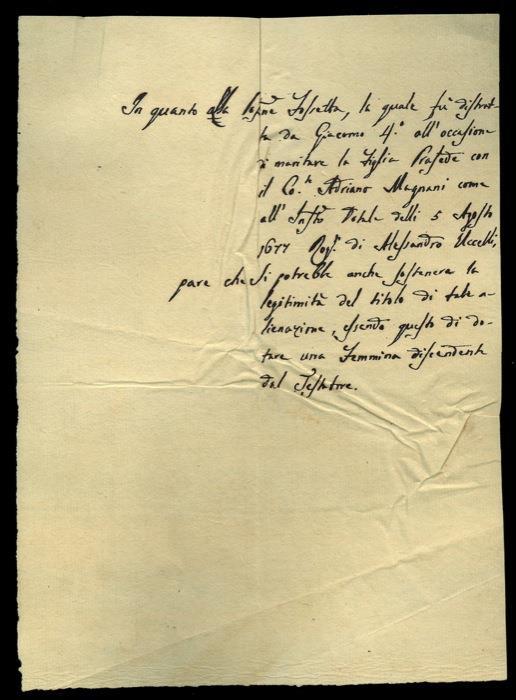 In quanto alla sop.ne Fossetta, la quale fù distrat-
ta da Giacomo 4.o all'occasione
di maritare la Figlia Prasede con
il Co.te Adriano Magnani come
all' Instr.o Dotale delli 5 Agosto
1677 Rog.o di Alessandro Uccelli,
pare che si potrebbe anche sostenere la
legitimità del titolo di tale a-
lienazione, essendo questo di do-
tare una Femmina discendente
dal Testatore.